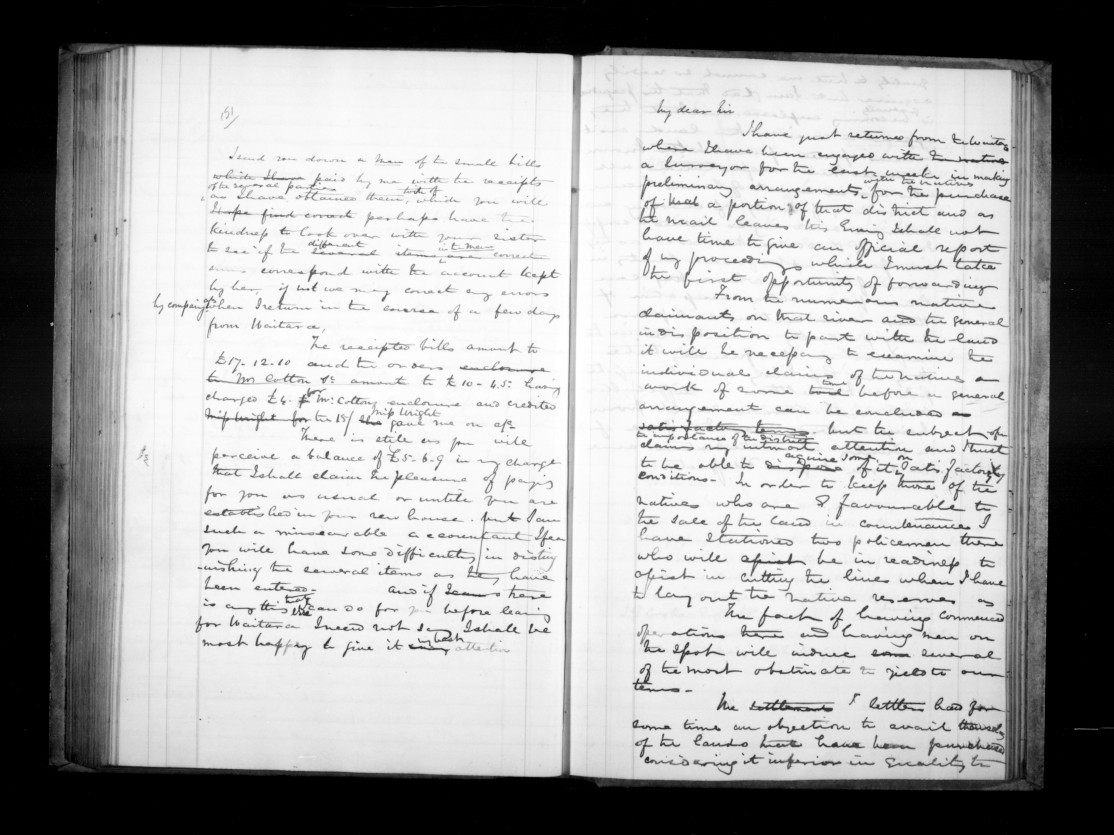 151/
I send you down a mem of the small bills
which I have paid by me with the receipts
of the several parties
as I have obtained them, which you will
I hope find correct perhaps have the
kindness to look over with your sister
to see if the several different items are correct
sums correspond with the account kept
by her, if not we may correct any errors
when I return in the course of a few days
from Waitara,
The receipted bills amount to
£17-12-10 and the orders enclosure
to Mr Cotton &c amount to £10-4.5. having
charged £4. for Mr Cottons enclosure and credited
Miss Wright for the 18/ she Miss Wright gave me on a/c
There is still as you will
perceive a balance of £5-6-9 in my charge
that I shall claim the pleasure of paying
for you as usual or until you are
established in your new house. but I am
such a miserable accountant I fear
you will have some difficulty in disting
-uishing the several items as they have
been entered. and if
is any thing I can do for you before leaving
for Waitara I need not say I shall be
most happy to give it my best attention
My dear Sir
I have just returned from the Waitara
where I have been engaged with the
a Surveyor for the last week in making
preliminary arrangements, with the natives for the purchase
of a portion of that district and as
the mail leaves this Evening I shall not
have time to give an official report
of my proceedings which I must take
the first opportunity of forwarding
From the numerous native
claimants on that river and the general
indisposition to part with the land
it will be necessary to examine the
individual claims of the natives a
work of some time before a general
arrangement can be concluded
satisfactory terms. but the subject of
the importance of the district
claims my utmost attention and I trust
to be able to acquire some of it on satisfactory
conditions. In order to keep those of the
natives who are favourable to
the sale of the land in countenance I
have stationed two policemen there
who will assist be in readiness to
assist in cutting the lines when I have
to lay out the native reserves as
The fact of having commenced
operations there and having men on
the spot will induce some several
of the most obstinate to yield to our
terms.
The settlement settlers had for
some time an objection to avail themselves
of the lands that have been purchased
considering it inferior in quality to